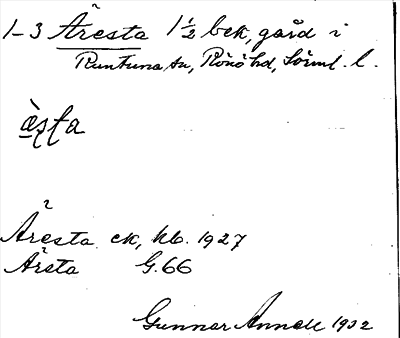 1-3 Äresta 1½ bek, gård i
Runtuna sn, Rönö hd, Söderml. l.
Äresta ek, kb. 1927
Ärsta G.66
Gunnar Annell 1932